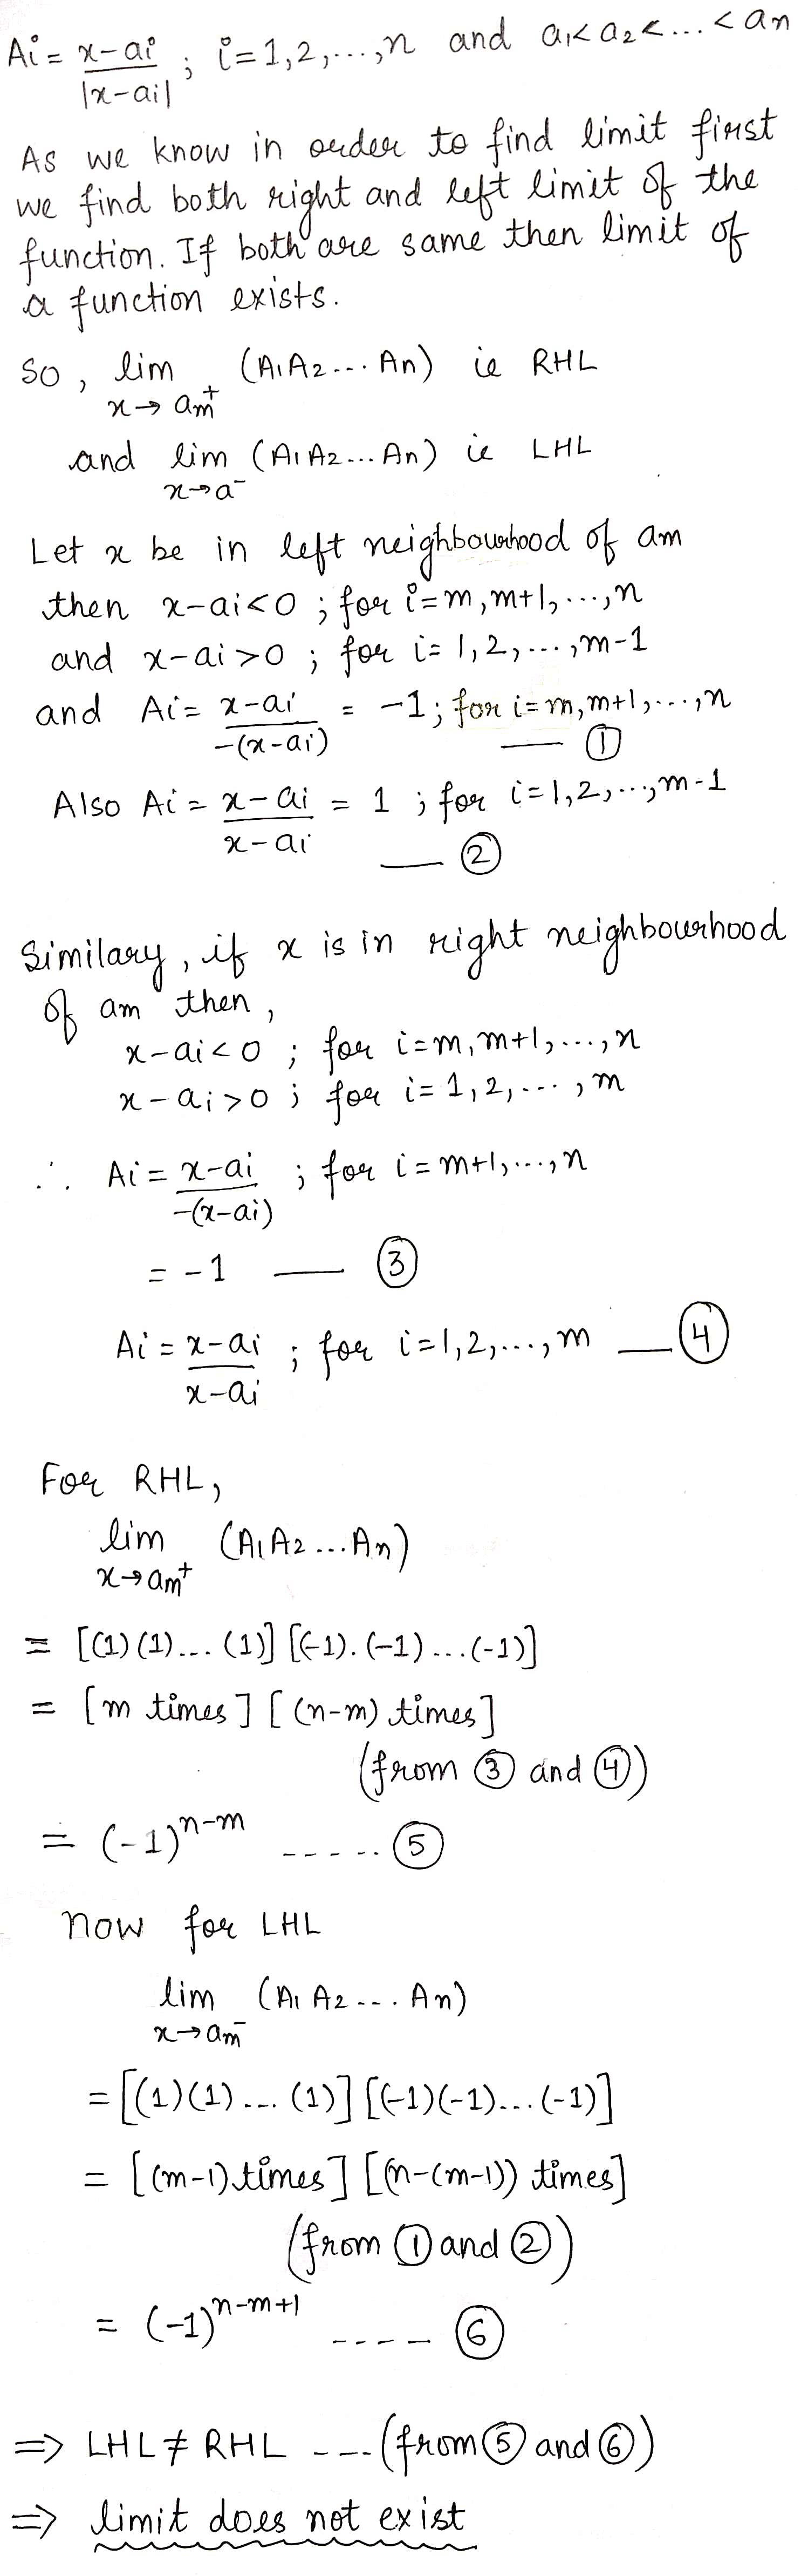 Ai = x-ai / |x-ai| ; i=1,2,...,n and a1<a2<...<an
As we know in order to find limit first
we find both right and left limit of the
function. If both are same then limit of
a function exists.
So, lim x→am+ (A1A2...An) ie RHL
and lim x→a- (A1A2...An) ie LHL
Let x be in left neighbourhood of am
then x-ai<0 ; for i=m,m+1,...,n
and x-ai>0 ; for i=1,2,...,m-1
and Ai = x-ai / -(x-ai) = -1; for i=m,m+1,...,n
— ①
Also Ai = x-ai / x-ai = 1 ; for i=1,2,...,m-1
— ②
Similary, if x is in right neighbourhood
of am then,
x-ai<0 ; for i=m,m+1,...,n
x-ai>0 ; for i=1,2,...,m
∴ Ai = x-ai / -(x-ai) ; for i=m+1,...,n
= -1 — ③
Ai = x-ai / x-ai ; for i=1,2,...,m — ④
For RHL,
lim x→am+ (A1A2...An)
= [(1)(1)...(1)] [(-1).(-1)...(-1)]
= [m times] [(n-m) times]
(from ③ and ④)
= (-1)^n-m ----- ⑤
Now for LHL
lim x→am- (A1A2...An)
= [(1)(1)...(1)] [(-1)(-1)...(-1)]
= [(m-1) times] [(n-(m-1)) times]
(from ① and ②)
= (-1)^n-m+1 ---- ⑥
⇒ LHL ≠ RHL ---(from ⑤ and ⑥)
⇒ limit does not exist